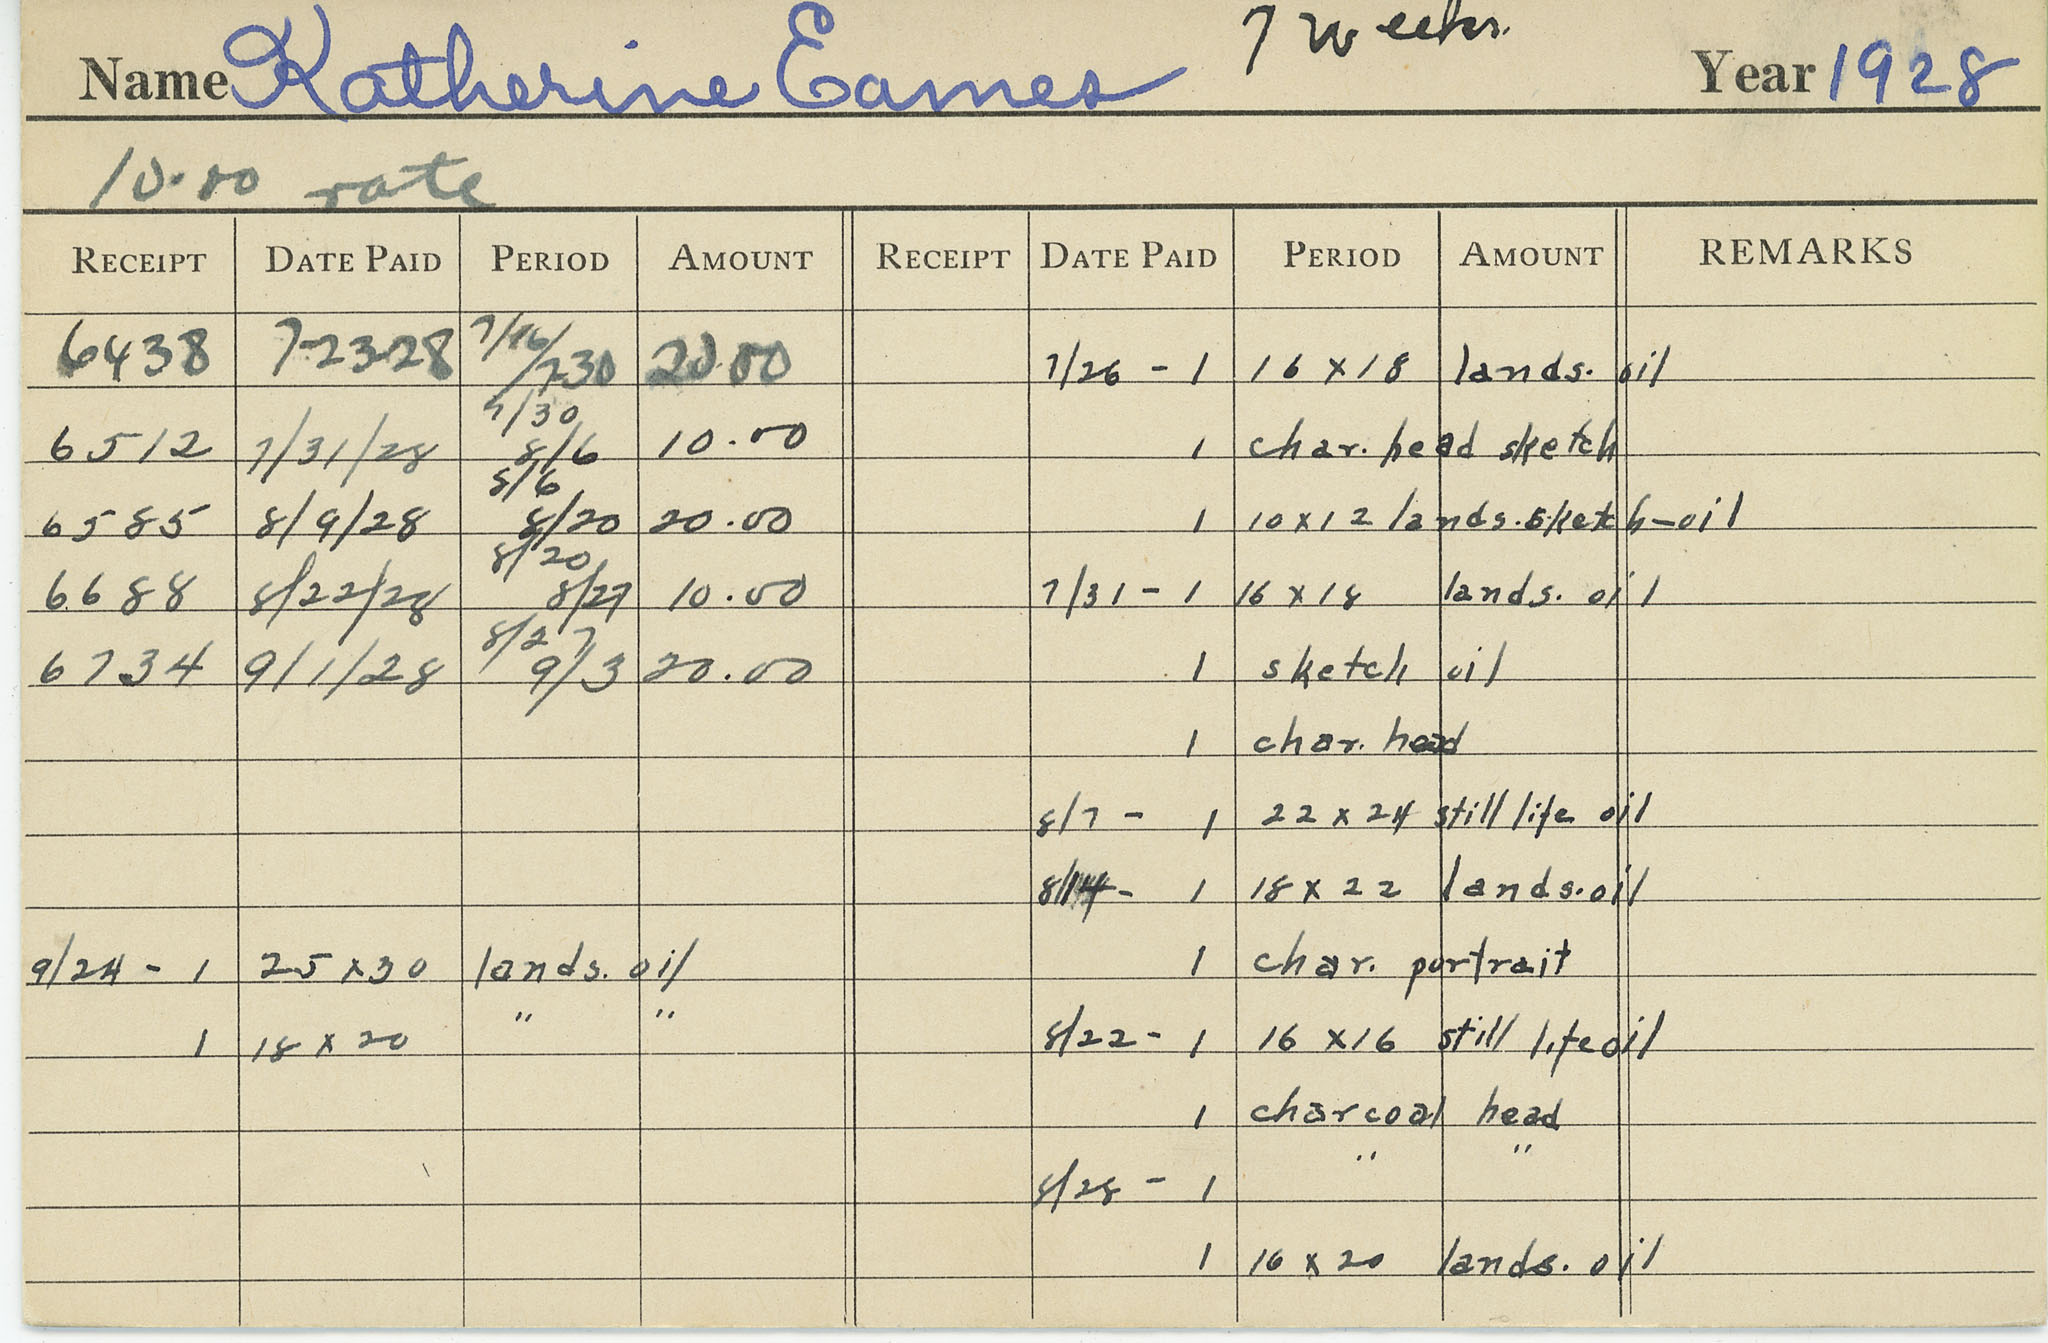 7 weeks.
Name Katherine Eames Year 1928
10.00 rate
RECEIPT DATE PAID PERIOD AMOUNT RECEIPT DATE PAID PERIOD AMOUNT REMARKS
6438 7-23-28 7/16/ /730 20.00 7/26 - 1 16 x 18 lands. oil
7/30
6512 7/31/28 8/6 10.00 1 char. head sketch
8/6
6585 8/9/28 8/20 20.00 1 10x12 lands. sketch-oil
8/20
6688 8/22/28 8/27 10.00 7/31 - 1 16 x 18 lands. oil
8/27
6734 9/1/28 9/3 20.00 1 sketch oil
1 char. head
8/7 - 1 22 x 24 still life oil
8/14 - 1 18 x 22 lands. oil
9/24 - 1 25 x 30 lands. oil 1 char. portrait
1 18 x 20 " " 8/22 - 1 16 x 16 still life oil
1 charcoal head
8/28 - 1 " "
1 16 x 20 lands. oil